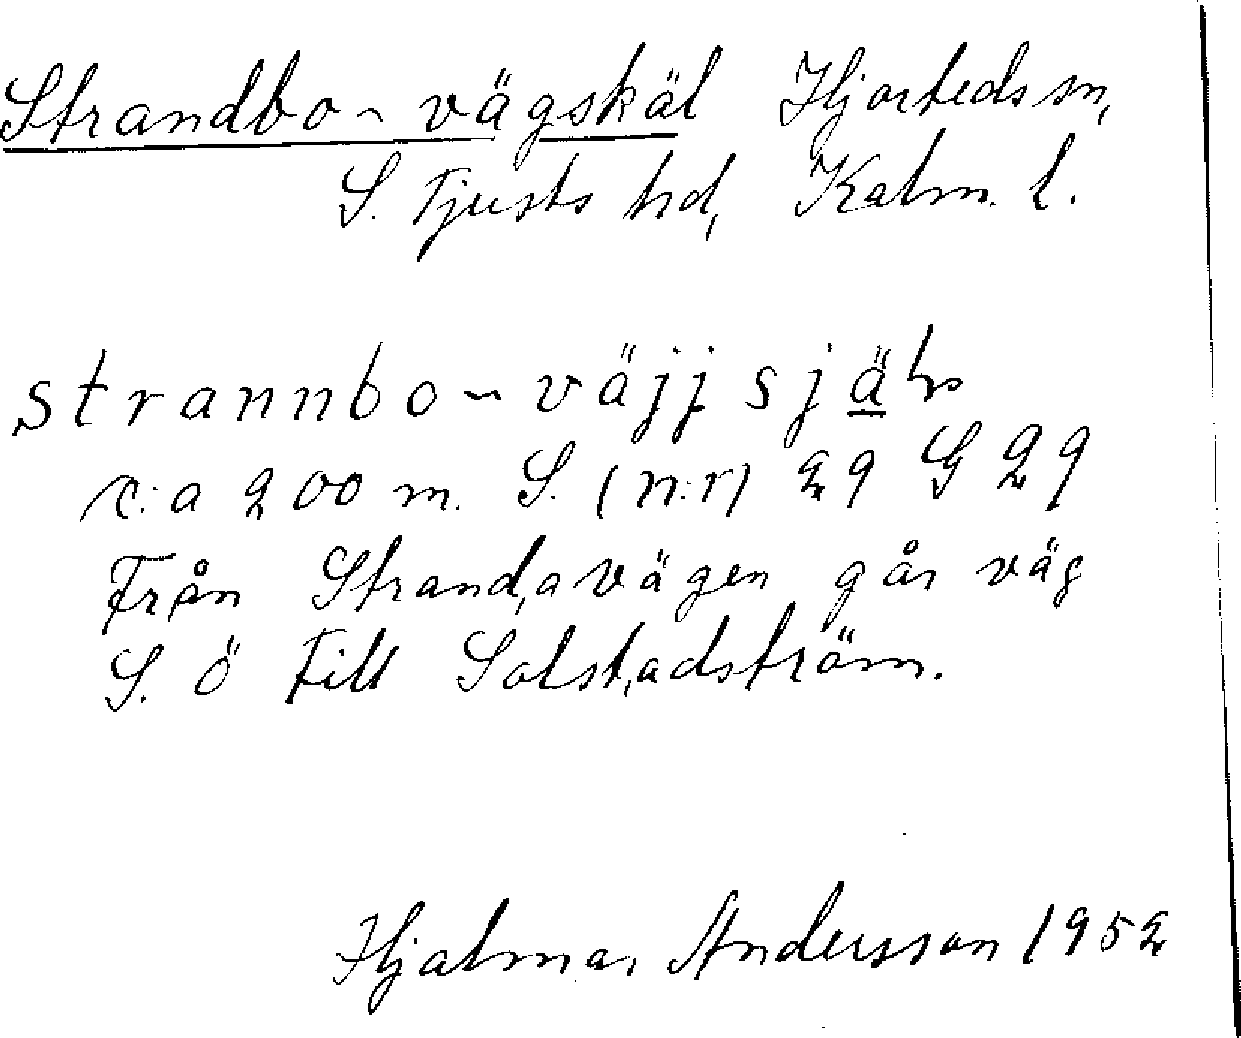 Strandbo ~ vägskäl Hjorteds sn,
S. Tjusts hd, Kalm. l.
strannbo ~ väjjsjäl
c:a 200 m. S. (n:r) 29 G 29
Från Strandavägen går väg
S. Ö till Solstadström.
Hjalmar Andersson 1952